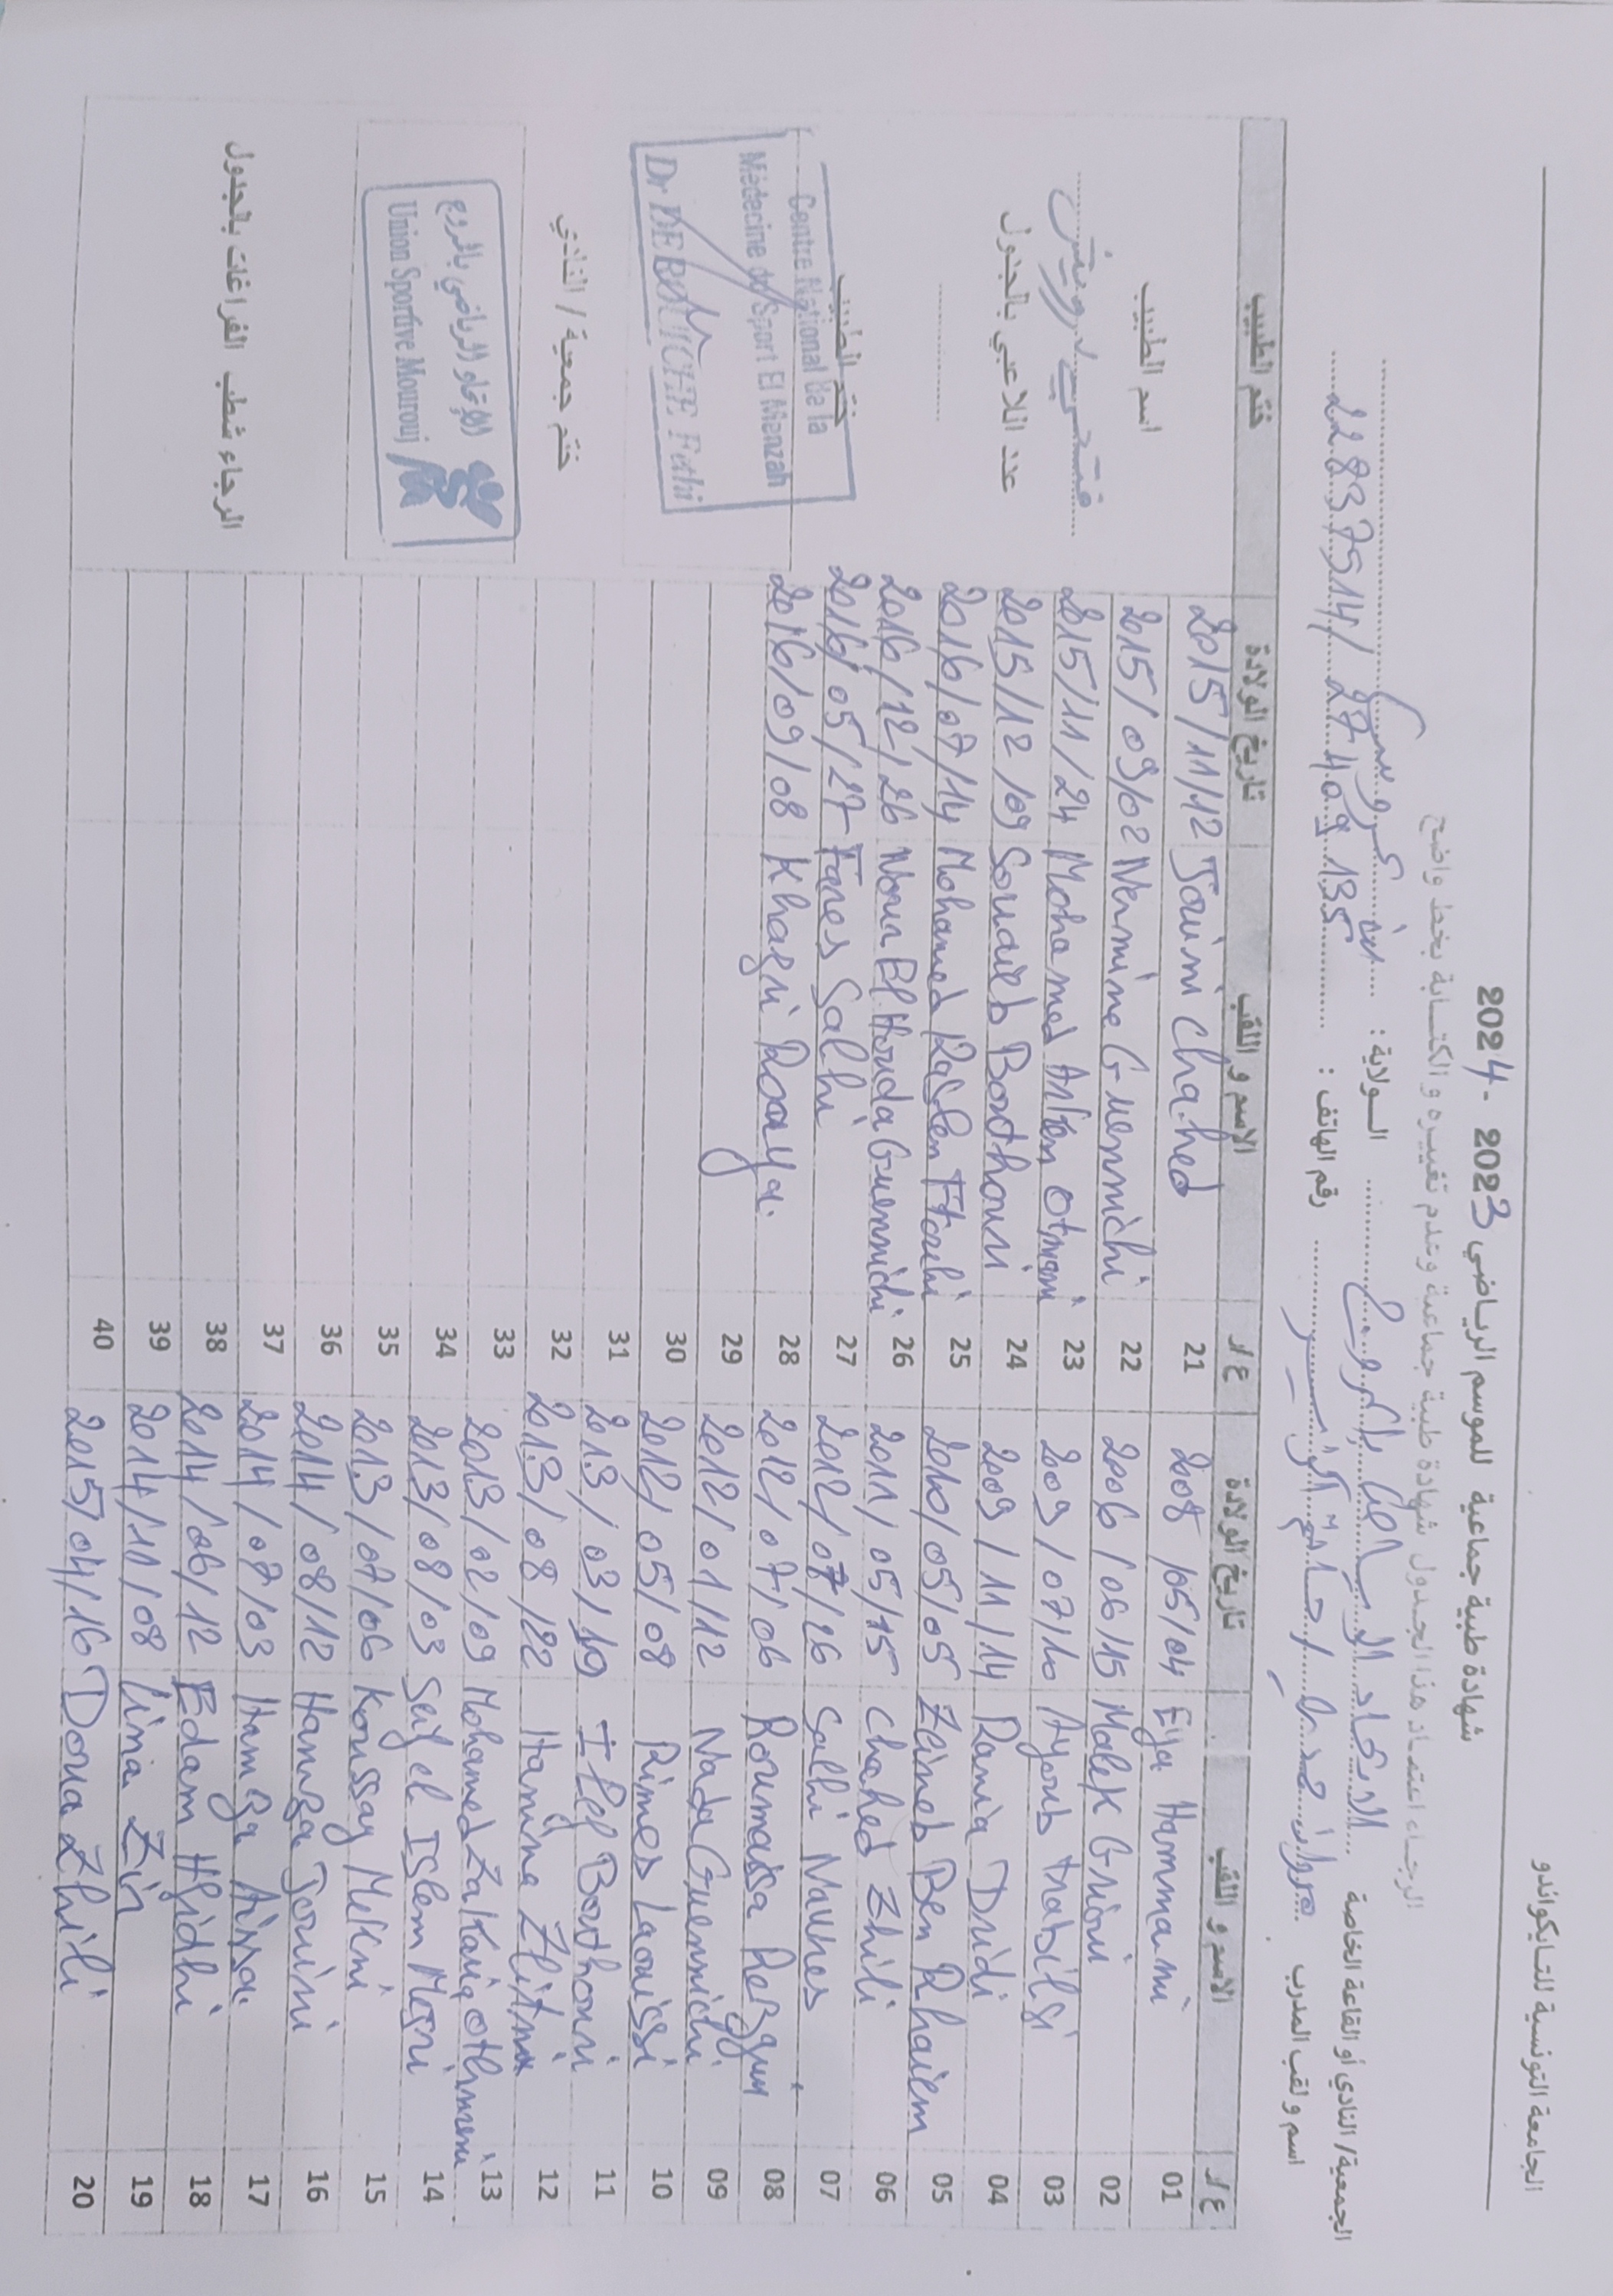 الجامعة التونسية للتايكواندو
شهادة طبية جماعية للموسم الرياضي 2023 - 2024
الرجاء اعتماد هذا الجدول شهادة طبية جماعية وعدم تغييره و الكتابة بخط واضح
الجمعية/ النادي أو القاعة الخاصة الاتحاد الرياضي بالمروج الولاية : بن عروس
اسم و لقب المدرب مروان رقم الهاتف : 22837514 / 27409135
ع/ر الاسم و اللقب تاريخ الولادة ع/ر الاسم و اللقب تاريخ الولادة ختم الطبيب
01 Eya Hammami 2008/05/04 21 Jouini Chahed 2015/11/12
02 Malek Grioui 2006/06/15 22 Nermine Guennichi 2015/09/02
03 Ayoub trabilsi 2009/07/10 23 Mohamed Otmani 2015/11/24
04 Rania Dridi 2009/11/14 24 Souaieb Borthouri 2015/12/09
05 Zeineb Ben Rhaiem 2010/05/05 25 Mohamed Raslen 2016/07/14
06 Chahed Zhili 2011/05/15 26 Nour El Houda Guennichi 2016/12/26
07 Salhi 2012/07/26 27 Fares Salhi 2016/05/27
08 Roumaissa Rezgui 2012/07/06 28 Khazri Roaya. 2016/09/08
09 Nada Guennichi 2012/01/12 29
10 Rimes Laouissi 2012/05/08 30
11 Borthouri 2013/03/19 31
12 2013/08/22 32
13 Mohamed Zakaria othmeni 2013/02/09 33
14 Seif el Islem Masri 2013/08/03 34
15 Koussay Mekni 2013/07/06 35
16 Hamza Jouini 2014/08/12 36
17 Hamza Aissa. 2014/07/03 37
18 Edam Hfidhi 2014/06/12 38
19 Lina Zin 2014/10/08 39
20 Doua Zhili 2015/04/16 40
اسم الطبيب
فتحي درويش
عدد اللاعبي بالجدول
ختم الطبيب
Centre National de la
Médecine du Sport El Menzah
Dr DEROUICHE Fethi
ختم جمعية / النادي
الإتحاد الرياضي بالمروج
Union Sportive Mourouj
الرجاء شطب الفراغات بالجدول